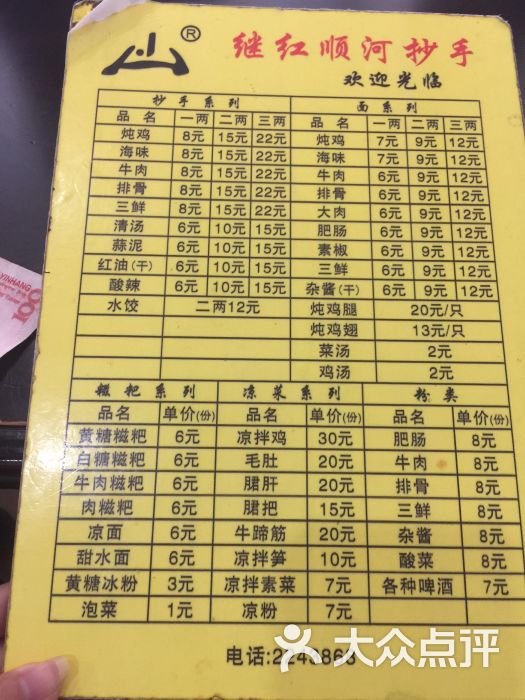 ®
继红顺河抄手
欢迎光临
抄手系列 面系列
品名 一两 二两 三两 品名 一两 二两 三两
炖鸡 8元 15元 22元 炖鸡 7元 9元 12元
海味 8元 15元 22元 海味 7元 9元 12元
牛肉 8元 15元 22元 牛肉 6元 9元 12元
排骨 8元 15元 22元 排骨 6元 9元 12元
三鲜 8元 15元 22元 大肉 6元 9元 12元
清汤 6元 10元 15元 肥肠 6元 9元 12元
蒜泥 6元 10元 15元 素椒 6元 9元 12元
红油(干) 6元 10元 15元 三鲜 6元 9元 12元
酸辣 6元 10元 15元 杂酱(干) 6元 9元 12元
水饺 二两12元 炖鸡腿 20元/只
炖鸡翅 13元/只
菜汤 2元
鸡汤 2元
糍粑系列 凉菜系列 粉类
品名 单价(份) 品名 单价(份) 品名 单价(份)
黄糖糍粑 6元 凉拌鸡 30元 肥肠 8元
白糖糍粑 6元 毛肚 20元 牛肉 8元
牛肉糍粑 6元 䐃肝 20元 排骨 8元
肉糍粑 6元 䐃把 15元 三鲜 8元
凉面 6元 牛蹄筋 20元 杂酱 8元
甜水面 6元 凉拌笋 10元 酸菜 8元
黄糖冰粉 3元 凉拌素菜 7元 各种啤酒 7元
泡菜 1元 凉粉 7元
电话:2240863
大众点评